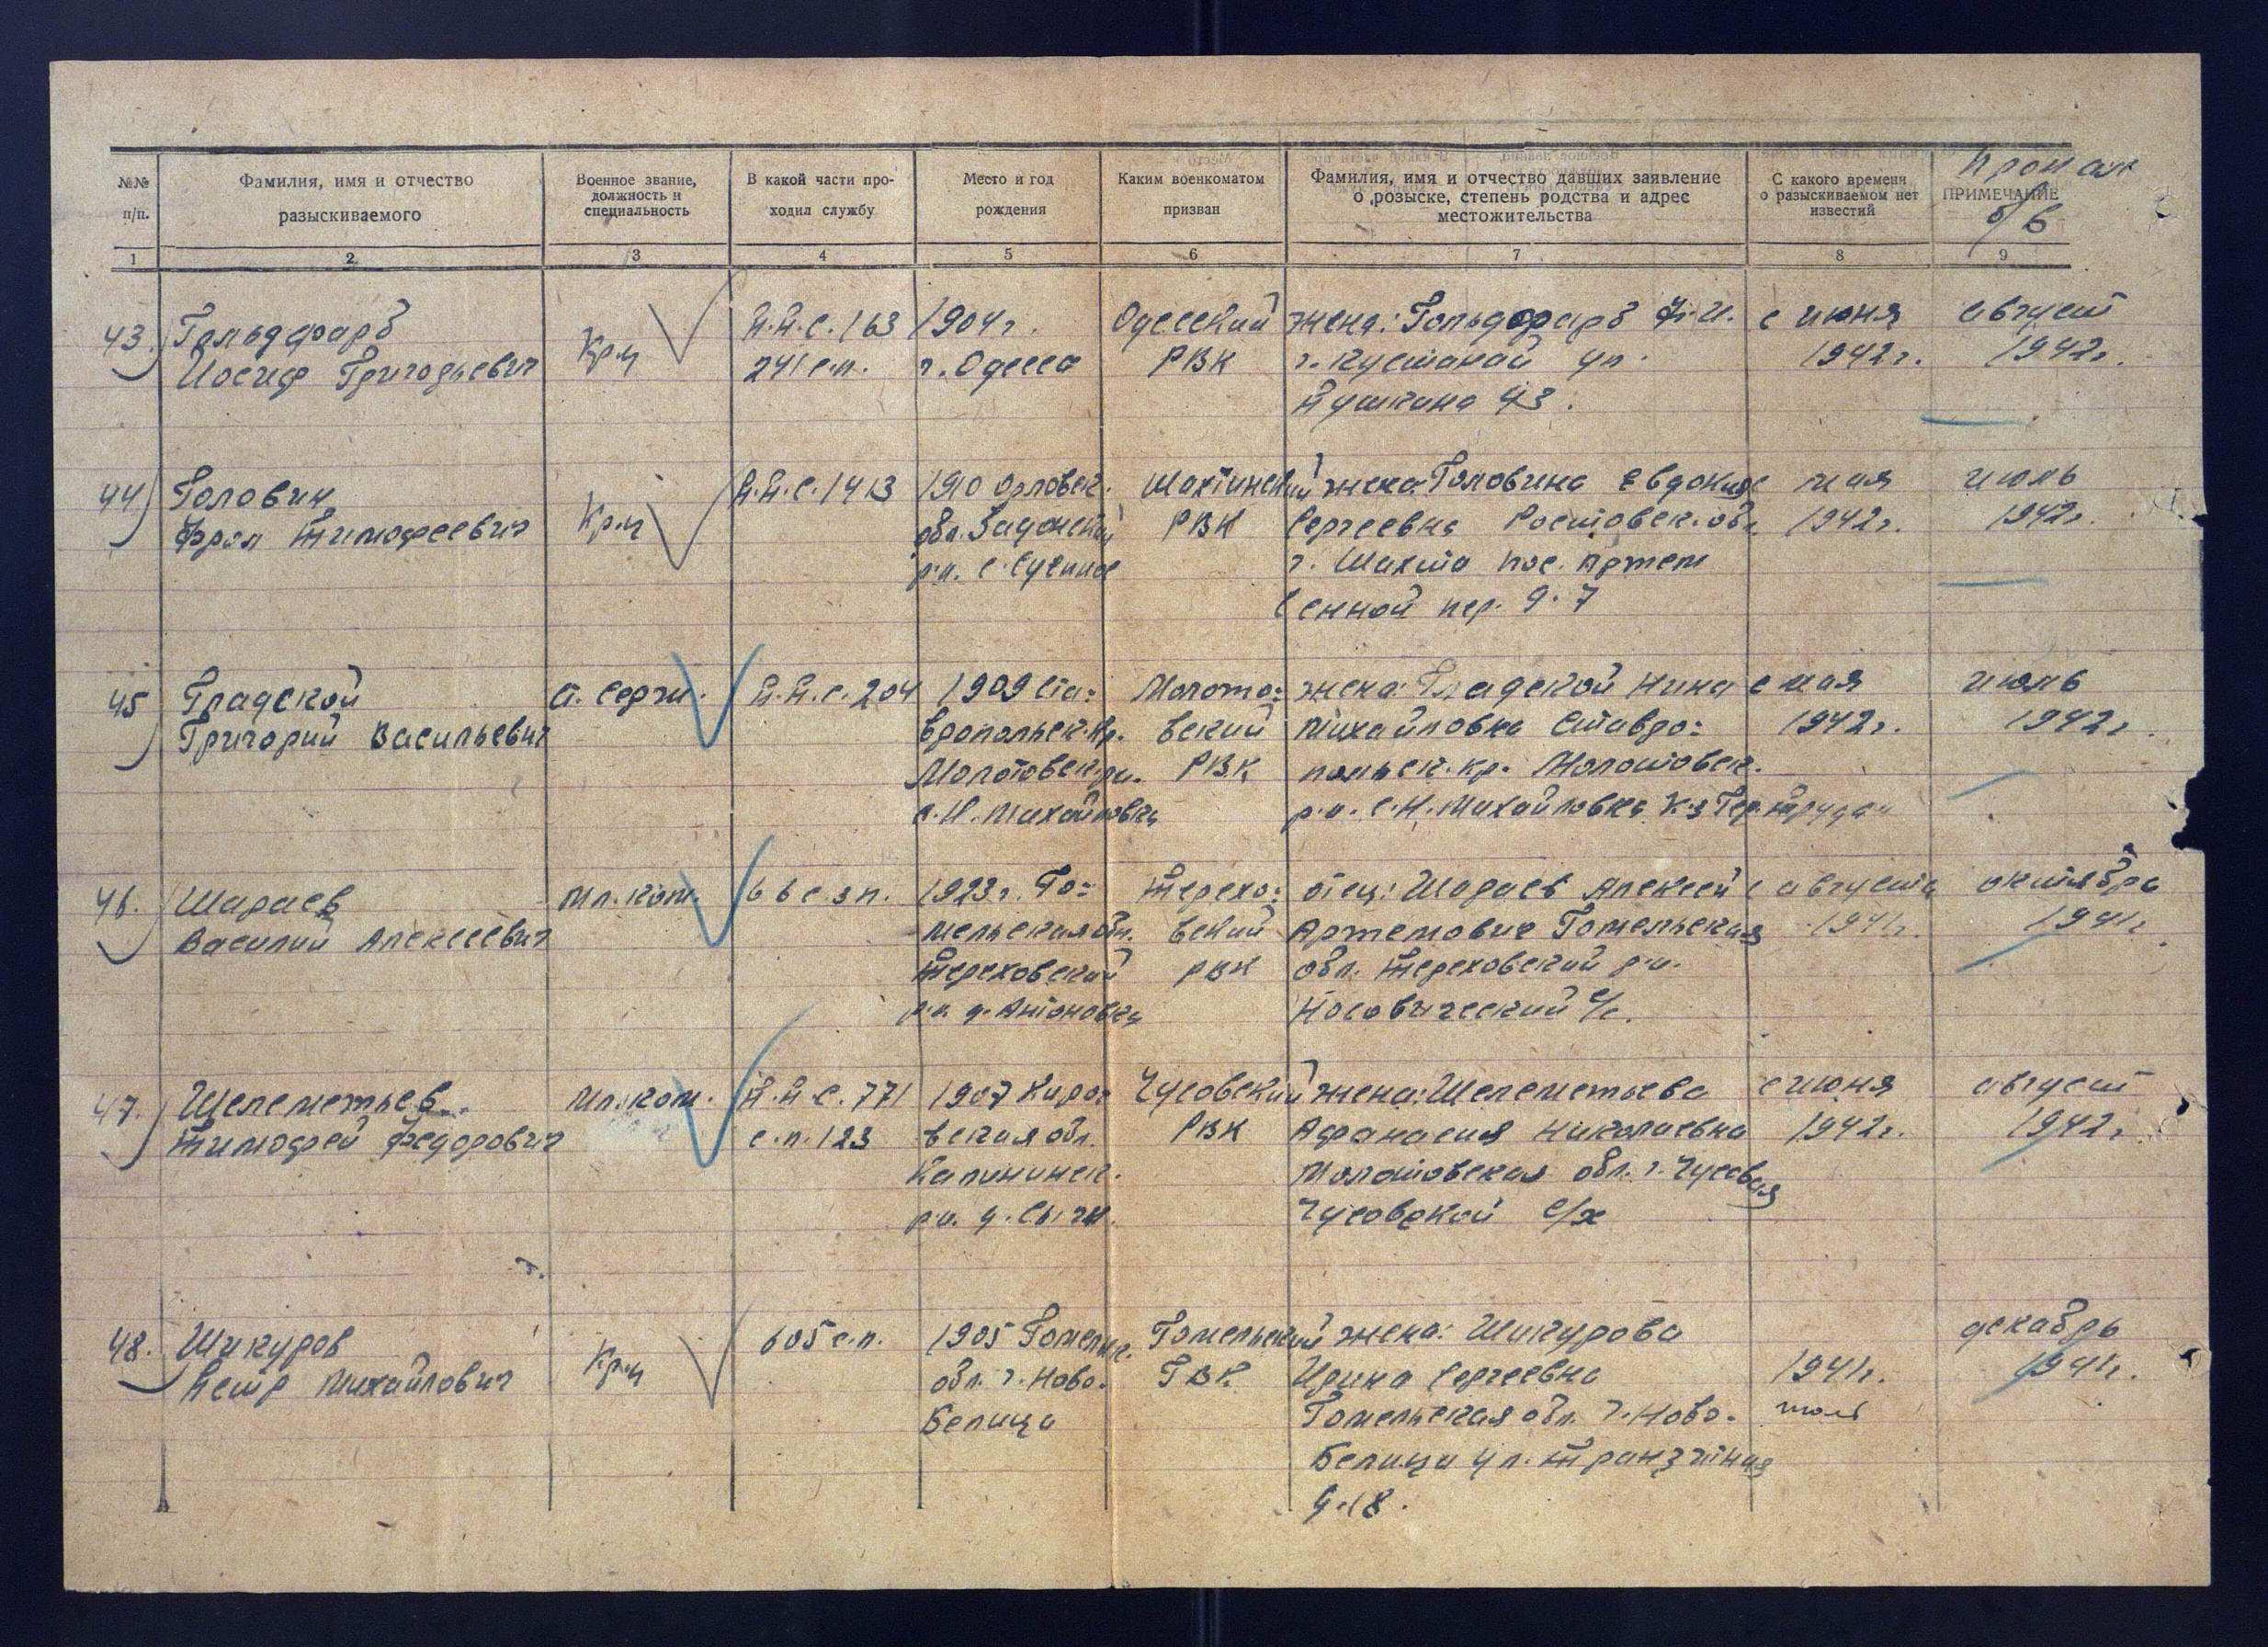 №№ п/п.
Фамилия, имя и отчество разыскиваемого
Военное звание, должность и специальность
В какой части проходил службу
Место и год рождения
Каким военкоматом призван
Фамилия, имя и отчество давших заявление о розыске, степень родства и адрес местожительства
С какого времени о разыскиваемом нет известий
ПРИМЕЧАНИЕ
Пропал
б/в
1 2 3 4 5 6 7 8 9
43. Гольдфарб
Иосиф Григорьевич
Кр-ц
П.П.С. 163
241 с.п.
1904 г.
г. Одесса
Одесский
РВК
жена: Гольдфарб
г. Кустанай ул.
Пушкина 43.
с июня
1942 г.
август
1942 г.
44) Головин
Фрол Тимофеевич
Кр-ц
П.П.С. 1413
1910 Орловск.
обл. Задонский
р-н. с.
Шахтинский
РВК
жена: Головина Евдокия
Сергеевна Ростовск. обл.
г. Шахта пос. Артем
пер. д. 7
с мая
1942 г.
июль
1942 г.
45 Градской
Григорий Васильевич
с. серж.
П.П.С. 204
1909 Ста-
вропольск. кр.
Молотовск. р-н.
с. Н. Михайловка
Молото-
вский
РВК
жена Градской Нина
Михайловна Ставро-
польск. кр. Молотовск.
р-н. с. Н. Михайловка к-з
с мая
1942 г.
июль
1942 г.
46. Шараев
Василий Алексеевич
Мл. ком.
66 с.з.п.
1923 г. Го-
мельская обл.
Тереховский
р-н д. Антоновка
Терехо-
вский
РВК
отец: Шараев Алексей
Артемович Гомельская
обл. Тереховский р-н.
Носовический с/с.
с августа
1941 г.
октябрь
1941 г.
47. Шелеметьев
Тимофей Федорович
Мл. ком.
П.П.С. 771
с.п. 123
1907 Киро-
вская обл.
Калининск.
р-н. д.
Чусовский
РВК
жена: Шелеметьева
Афанасия Николаевна
Молотовская обл. г. Чусовая
Чусовской с/х
с июня
1942 г.
август
1942 г.
48. Шикуров
Петр Михайлович
Кр-ц
605 с.п.
1905 Гомельск.
обл. г. Ново-
Белица
Гомельский
ГВК
жена: Шикурова
Ирина Сергеевна
Гомельская обл. г. Ново-
Белица ул. Транзитная
д. 18.
1941 г.
июль
декабрь
1941 г.